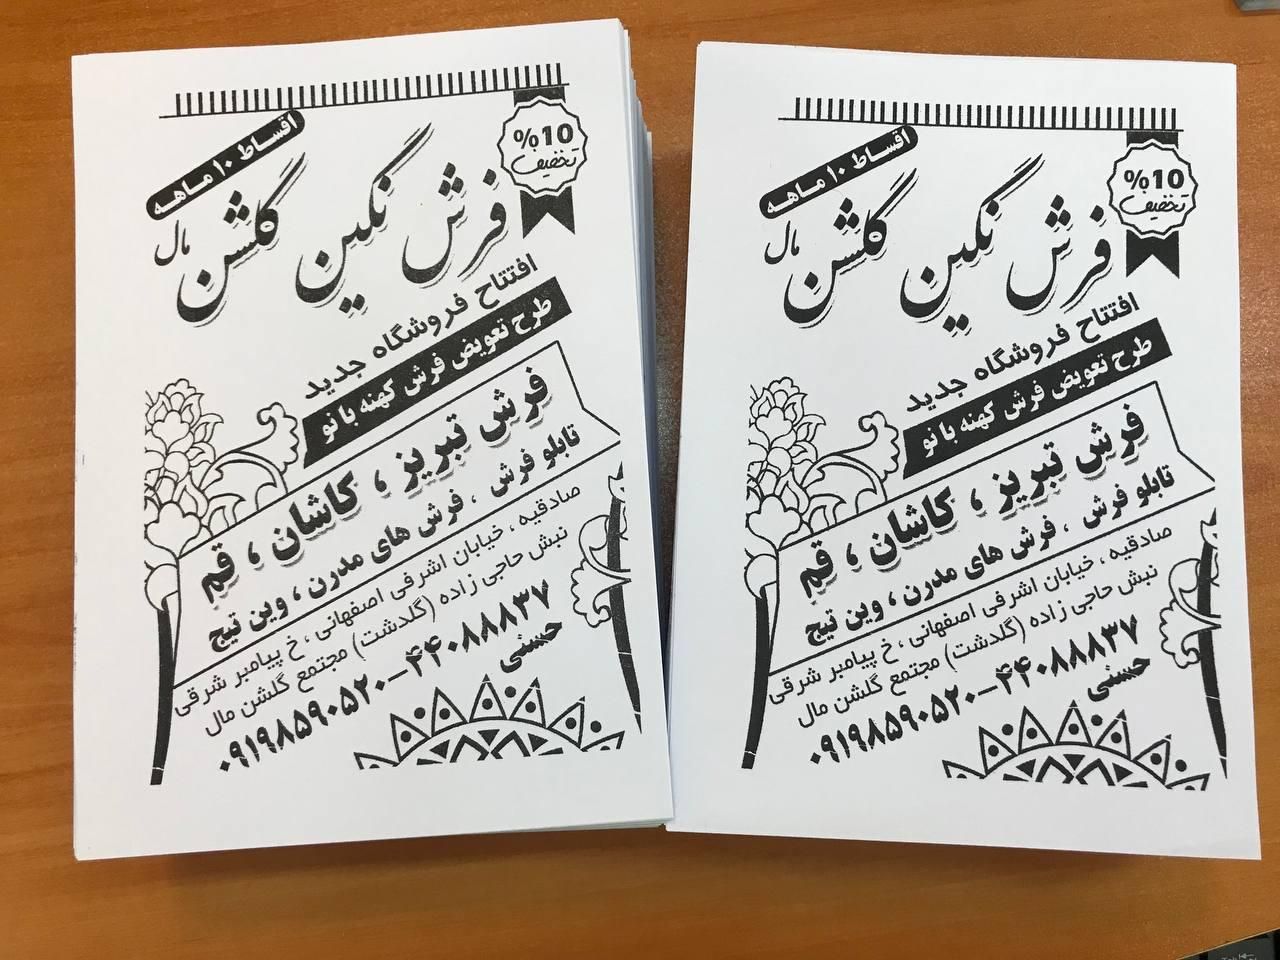 اقساط ۱۰ ماهه
%10
تخفیف
فرش نگین گلشن مال
افتتاح فروشگاه جدید
طرح تعویض فرش کهنه با نو
فرش تبریز ، کاشان ، قم
تابلو فرش ، فرش های مدرن ، وین تیج
صادقیه ، خیابان اشرفی اصفهانی ، خ پیامبر شرقی
نبش حاجی زاده (گلدشت) مجتمع گلشن مال
۰۹۱۹۸۵۹۰۵۲۰-۴۴۰۸۸۸۳۷
حسنی
اقساط ۱۰ ماهه
%10
تخفیف
فرش نگین گلشن مال
افتتاح فروشگاه جدید
طرح تعویض فرش کهنه با نو
فرش تبریز ، کاشان ، قم
تابلو فرش ، فرش های مدرن ، وین تیج
صادقیه ، خیابان اشرفی اصفهانی ، خ پیامبر شرقی
نبش حاجی زاده (گلدشت) مجتمع گلشن مال
۰۹۱۹۸۵۹۰۵۲۰-۴۴۰۸۸۸۳۷
حسنی